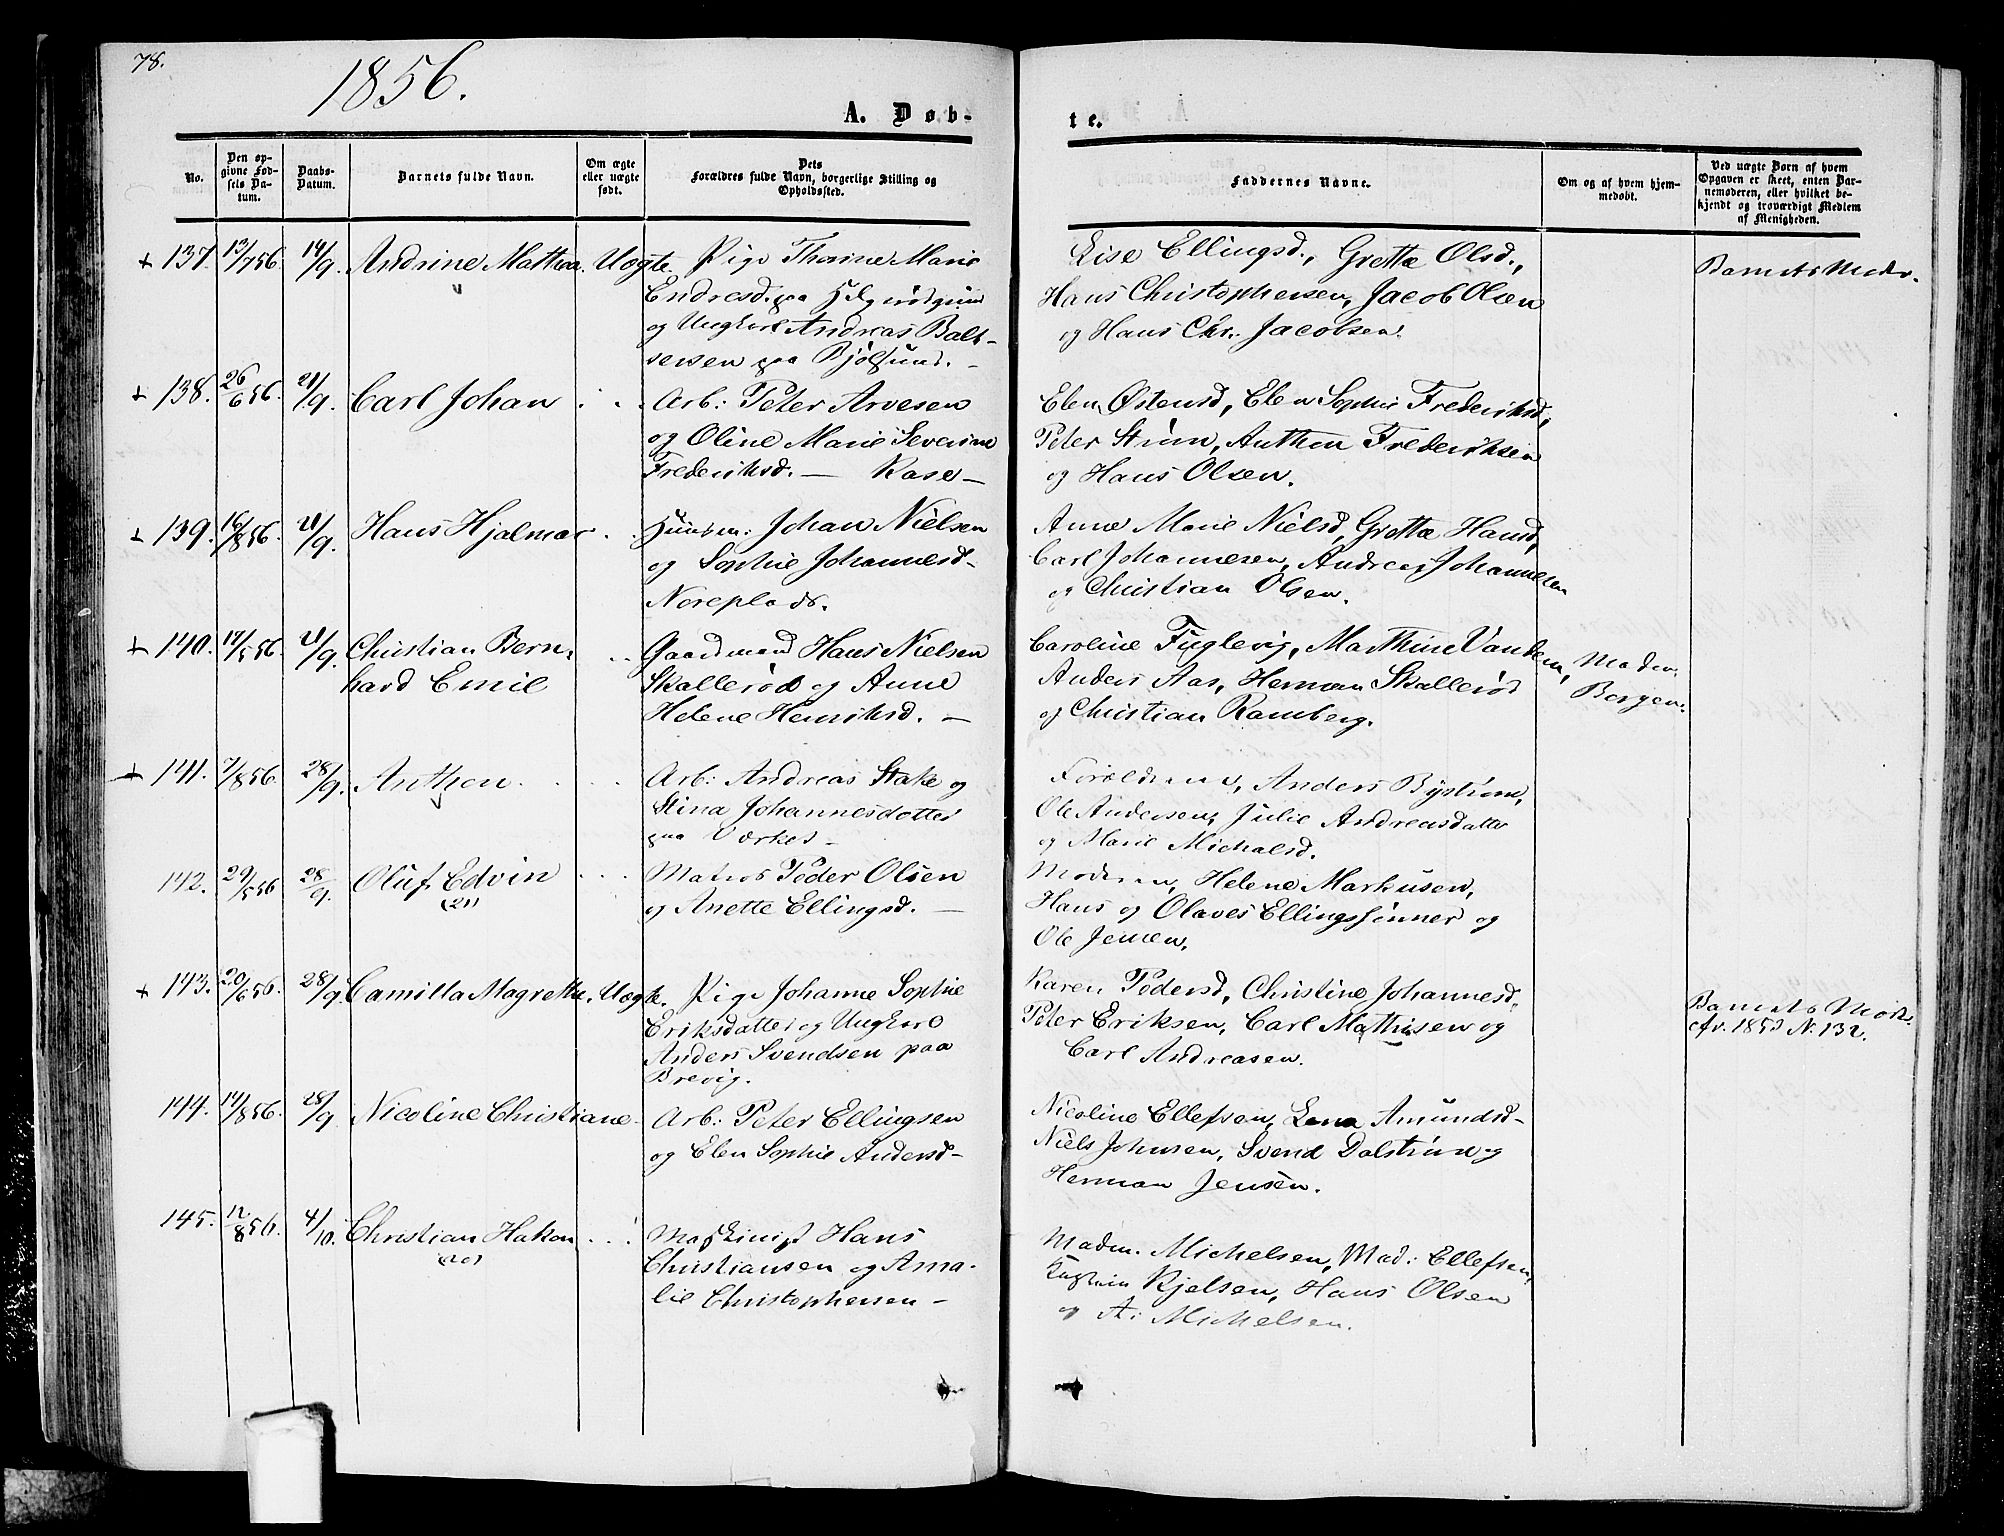 78.
1856.
A. Døb-
te.
No.
Den op-
givne Fød-
sels Da-
tum.
Daabs-
Datum.
Barnets fulde Navn.
Om ægte
eller uægte
født.
Dets
Forældres fulde Navn, borgerlige Stilling og
Opholdssted.
Faddernes Navne.
Om og af hvem hjem-
medøbt.
Ved uægte Børn af hvem
Opgaven er skeet, enten Bar-
nemoderen, eller hvilket be-
kjendt og troværdigt Medlem
af Menigheden.
+ 137. 13/7 56. 14/9. Andrine Mathea. Uægte. Pige Thorine Marie
Endresd. paa Helgerødgrund
og Ungkarl Andreas Balt-
sersen paa Bjølsund. -
Lise Ellingsd., Grethe Olsd.,
Hans Christophersen, Jacob Olsen
og Hans Chr. Jacobsen.
Barnets Moder.
+ 138. 26/6 56. 21/9. Carl Johan Arb: Peter Arvesen
og Oline Marie Severine
Frederiksd. — Kase —
Elen Østensd, Elen Sophie Frederiksd,
Peter Strøm, Anthon Frederiksen
og Hans Olsen.
+ 139. 16/8 56. 21/9. Hans Hjalmar Huusm: Johan Nielsen
og Sophie Johannesd-
Noreplads.
Anne Marie Nielsd, Grethe Hansd,
Carl Johannesen, Andreas Johannesen
og Christian Olsen.
+ 140. 14/5 56. 21/9. Christian Bern-
hard Emil
Gaardmand Hans Nielsen
Skallerød og Anne
Helene Henriksd. —
Caroline Fuglevig, Mathine Vandem,
Anders Aas, Herman Skallerød
og Christian Ramberg.
Madm.
Bergen.
+ 141. 7/8 56. 28/9. Anthon Arb: Andreas Stake og
Stina Johannesdotter
paa Værket -
Forældrene, Anders Bystrøm,
Ole Andersen, Julie Andreasdatter
og Marie Michalsd.
142. 29/5 56 28/9. Oluf Edvin
(21)
Matros Peder Olsen
og Anette Ellingsd. —
Moderen, Helene Markusen,
Hans og Olaves Ellingssønner og
Ole Jensen.
+ 143. 20/6 56. 28/9. Camilla Magrethe. Uægte. Pige Johanne Sophie
Eriksdatter og Ungkarl
Anders Svendsen paa
Brevig.
Karen Pedersd, Christine Johannesd,
Peter Eriksen, Carl Mathisen og
Carl Andreasen.
Barnets Moder.
cfr. 1853 N. 132.
144. 14/8 56. 28/9. Nicoline Christiane Arb: Peter Ellingsen
og Elen Sophie Andersd-
Nicoline Ellefsen, Lena Amundsd-
Niels Johnsen, Svend Dalstrøm og
Herman Jensen.
145. 12/8 56. 4/10. Christian Hakon
Maskinist Hans
Christiansen og Ama-
lie Christophersen -
Madm. Michelsen, Mad: Ellefsen,
Kjelsen, Hans Olsen
og A: Michelsen.